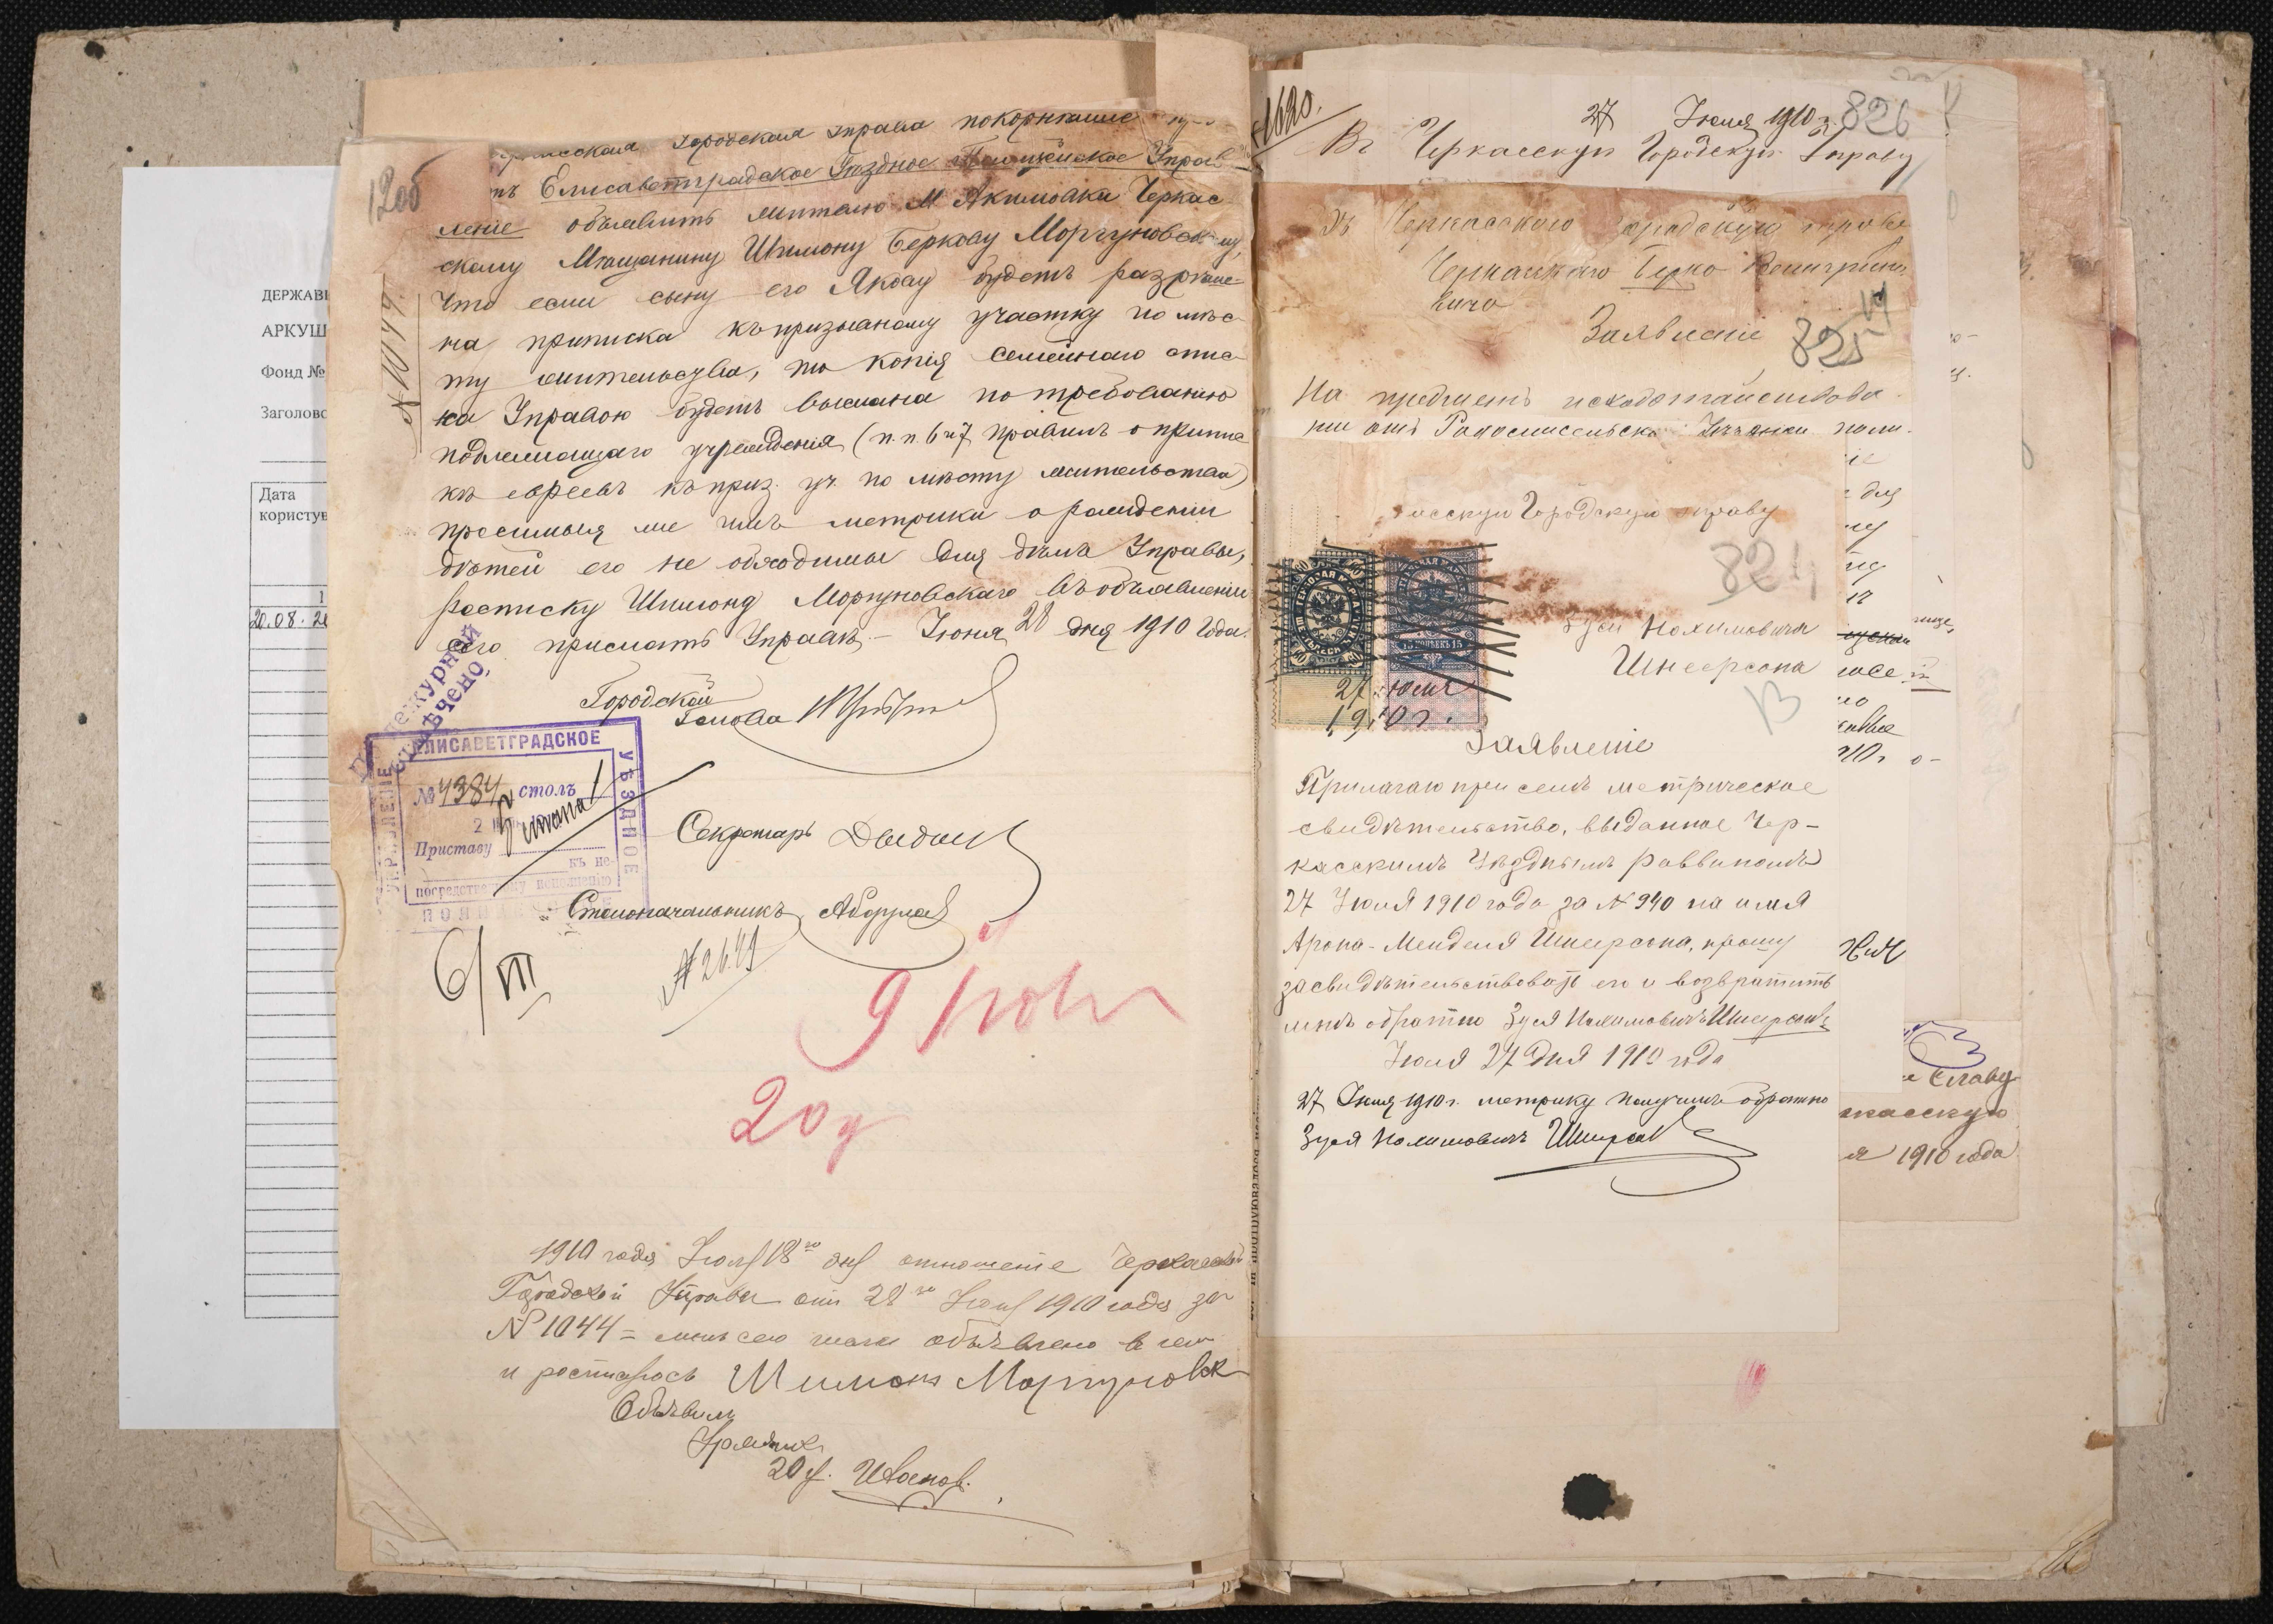 ДЕРЖАВ
АРКУШ
Фонд №
Заголово
Дата
користув
1
20.08.2
12об
Городская Управа покорнейше
Елисаветградское Уѣздное Полицейское Управ
леніе объявить жителю М Акимовки Черкас
скому Мѣщанину Шимону Беркову Моргуновскому,
что если сыну его Якову будетъ разрѣше-
на приписка къ призывному участку по мѣс
ту жительства, то копія семейнаго спис
ка Управою будетъ выслана по требованію
подлежащаго учрежденія (п.п. 6 и 7 правилъ о припис
кѣ евреевъ къ приз. уч. по мѣсту жительства)
просимыя же имъ метрики о рожденіи
дѣтей его не обходимы для дѣлъ Управы,
росписку Шимона Моргуновскаго въ объявленіи
сего прислать Управѣ.- Іюня 28 дня 1910 года.
№ 1044.
Городской
Голова
ЕЛИСАВЕТГРАДСКОЕ
УѢЗДНОЕ
№ 4384 столъ 1
Приставу
къ не-
посредственному исполненію
Секретарь
Столоначальникъ
6/VII
№ 2649
9 Іюл
20 у
1910 года Іюля 18го дня отношеніе Черкасской
Городской Управы отъ 28го Іюня 1910 года за
№ 1044 = мнѣ сего числа объявлено в чем
и росписуюсь Шимонъ Моргуновск
Объявилъ
Урядник
20 у.
1620.
27 Іюля 1910 г. 826
Въ Черкасскую Городскую Управу
Въ Черкасскую городскую управу
Черкасскаго Берко
вича
Заявленіе
14
825
На предметъ исходотайствова
ніи отъ
асскую Городскую управу
824
Зуси Нохимовича
Шнеерсона
13
60 60
15 КОПѢЕКЪ 15
27 юля
1910 г.
Заявленіе
Прилагаю при семъ метрическое
свидѣтельство, выданное Чер-
касскимъ Уѣзднымъ раввиномъ
27 Іюля 1910 года за № 940 на имя
Арона-Менделя Шнеерсона, прошу
засвидѣтельствовать его и возвратить
мнѣ обратно Зуся Нохимовичъ Шнеерсонъ
Іюля 27 дня 1910 года
27 Іюля 1910 г. метрику получилъ обратно
Зуся Нохимовичъ Шнеерсонъ
для
10 г.
касскую
я 1910 года